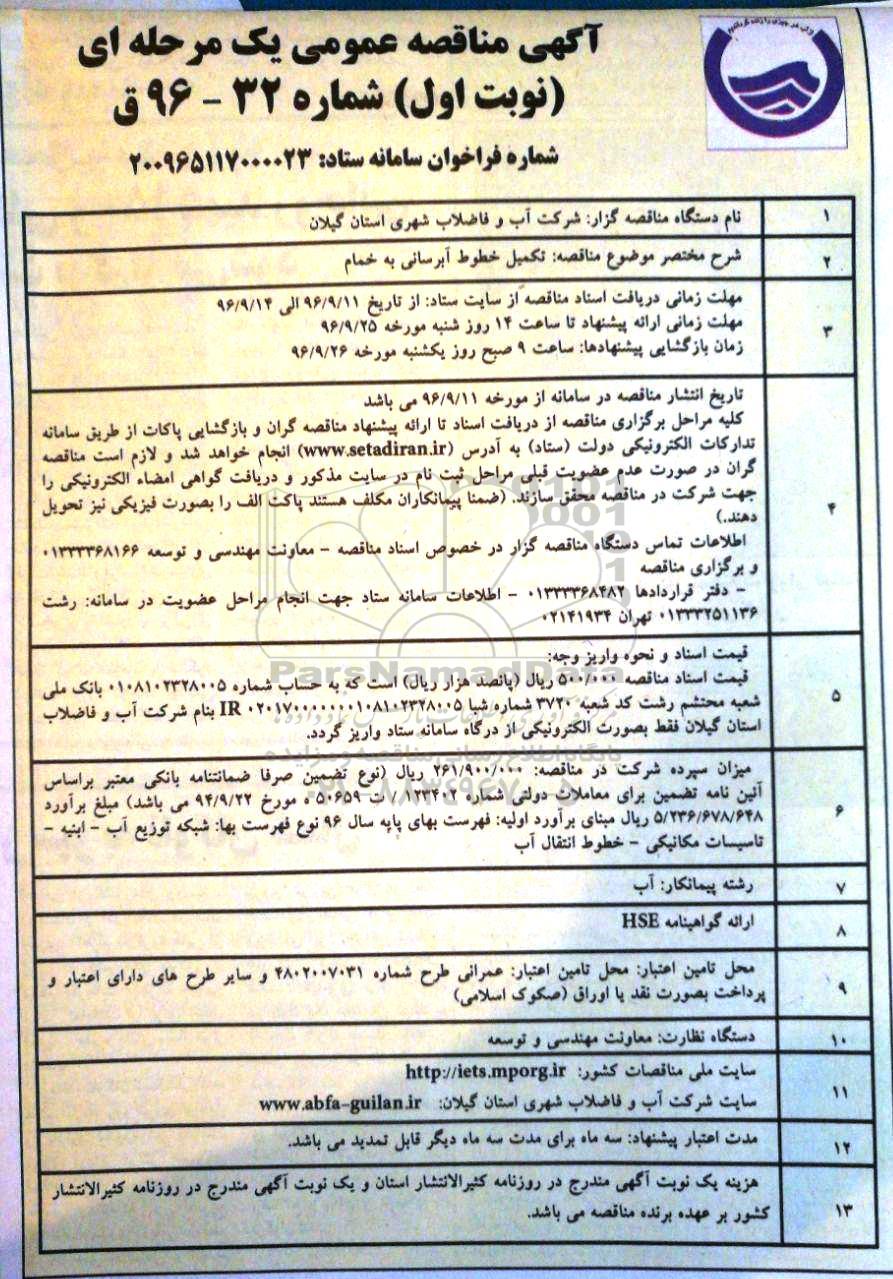 آگهی مناقصه عمومی یک مرحله ای
(نوبت اول) شماره ۳۲ - ۹۶ ق
شماره فراخوان سامانه ستاد: ۲۰۰۹۶۵۱۱۷۰۰۰۰۲۳
۱ نام دستگاه مناقصه گزار: شرکت آب و فاضلاب شهری استان گیلان
۲ شرح مختصر موضوع مناقصه: تکمیل خطوط آبرسانی به خمام
مهلت زمانی دریافت اسناد مناقصه از سایت ستاد: از تاریخ ۹۶/۹/۱۱ الی ۹۶/۹/۱۴
۳ مهلت زمانی ارائه پیشنهاد تا ساعت ۱۴ روز شنبه مورخه ۹۶/۹/۲۵
زمان بازگشایی پیشنهادها: ساعت ۹ صبح روز یکشنبه مورخه ۹۶/۹/۲۶
تاریخ انتشار مناقصه در سامانه از مورخه ۹۶/۹/۱۱ می باشد
کلیه مراحل برگزاری مناقصه از دریافت اسناد تا ارائه پیشنهاد مناقصه گران و بازگشایی پاکات از طریق سامانه
تدارکات الکترونیکی دولت (ستاد) به آدرس (www.setadiran.ir) انجام خواهد شد و لازم است مناقصه
گران در صورت عدم عضویت قبلی مراحل ثبت نام در سایت مذکور و دریافت گواهی امضاء الکترونیکی را
۴ جهت شرکت در مناقصه محقق سازند. (ضمنا پیمانکاران مکلف هستند پاکت الف را بصورت فیزیکی نیز تحویل
دهند.)
اطلاعات تماس دستگاه مناقصه گزار در خصوص اسناد مناقصه - معاونت مهندسی و توسعه ۰۱۳۳۳۳۶۸۱۶۶
و برگزاری مناقصه
- دفتر قراردادها ۰۱۳۳۳۳۶۸۴۸۲ - اطلاعات سامانه ستاد جهت انجام مراحل عضویت در سامانه: رشت
۰۱۳۳۳۲۵۱۱۳۶ تهران ۰۲۱۴۱۹۳۴
قیمت اسناد و نحوه واریز وجه:
۵ قیمت اسناد مناقصه ۵۰۰/۰۰۰ ریال (پانصد هزار ریال) است که به حساب شماره ۰۱۰۸۱۰۲۳۲۸۰۰۵ بانک ملی
شعبه محتشم رشت کد شعبه ۳۷۲۰ شماره شبا IR ۰۲۰۱۷۰۰۰۰۰۰۰۱۰۸۱۰۲۳۲۸۰۰۵ بنام شرکت آب و فاضلاب
استان گیلان فقط بصورت الکترونیکی از درگاه سامانه ستاد واریز گردد.
میزان سپرده شرکت در مناقصه: ۲۶۱/۹۰۰/۰۰۰ ریال (نوع تضمین صرفا ضمانتنامه بانکی معتبر براساس
۶ آئین نامه تضمین برای معاملات دولتی شماره ۱۲۳۴۰۲ / ت ۵۰۶۵۹ ه مورخ ۹۴/۹/۲۲ می باشد) مبلغ برآورد
۵/۲۳۶/۶۷۸/۶۴۸ ریال مبنای برآورد اولیه: فهرست بهای پایه سال ۹۶ نوع فهرست بها: شبکه توزیع آب - ابنیه -
تاسیسات مکانیکی - خطوط انتقال آب
۷ رشته پیمانکار: آب
۸ ارائه گواهینامه HSE
۹ محل تامین اعتبار: محل تامین اعتبار: عمرانی طرح شماره ۴۸۰۲۰۰۷۰۳۱ و سایر طرح های دارای اعتبار و
پرداخت بصورت نقد یا اوراق (صکوک اسلامی)
۱۰ دستگاه نظارت: معاونت مهندسی و توسعه
۱۱ سایت ملی مناقصات کشور: http://iets.mporg.ir
سایت شرکت آب و فاضلاب شهری استان گیلان: www.abfa-guilan.ir
۱۲ مدت اعتبار پیشنهاد: سه ماه برای مدت سه ماه دیگر قابل تمدید می باشد.
۱۳ هزینه یک نوبت آگهی مندرج در روزنامه کثیرالانتشار استان و یک نوبت آگهی مندرج در روزنامه کثیرالانتشار
کشور بر عهده برنده مناقصه می باشد.
ParsNamadData
پایگاه اطلاع رسانی مناقصه و مزایده